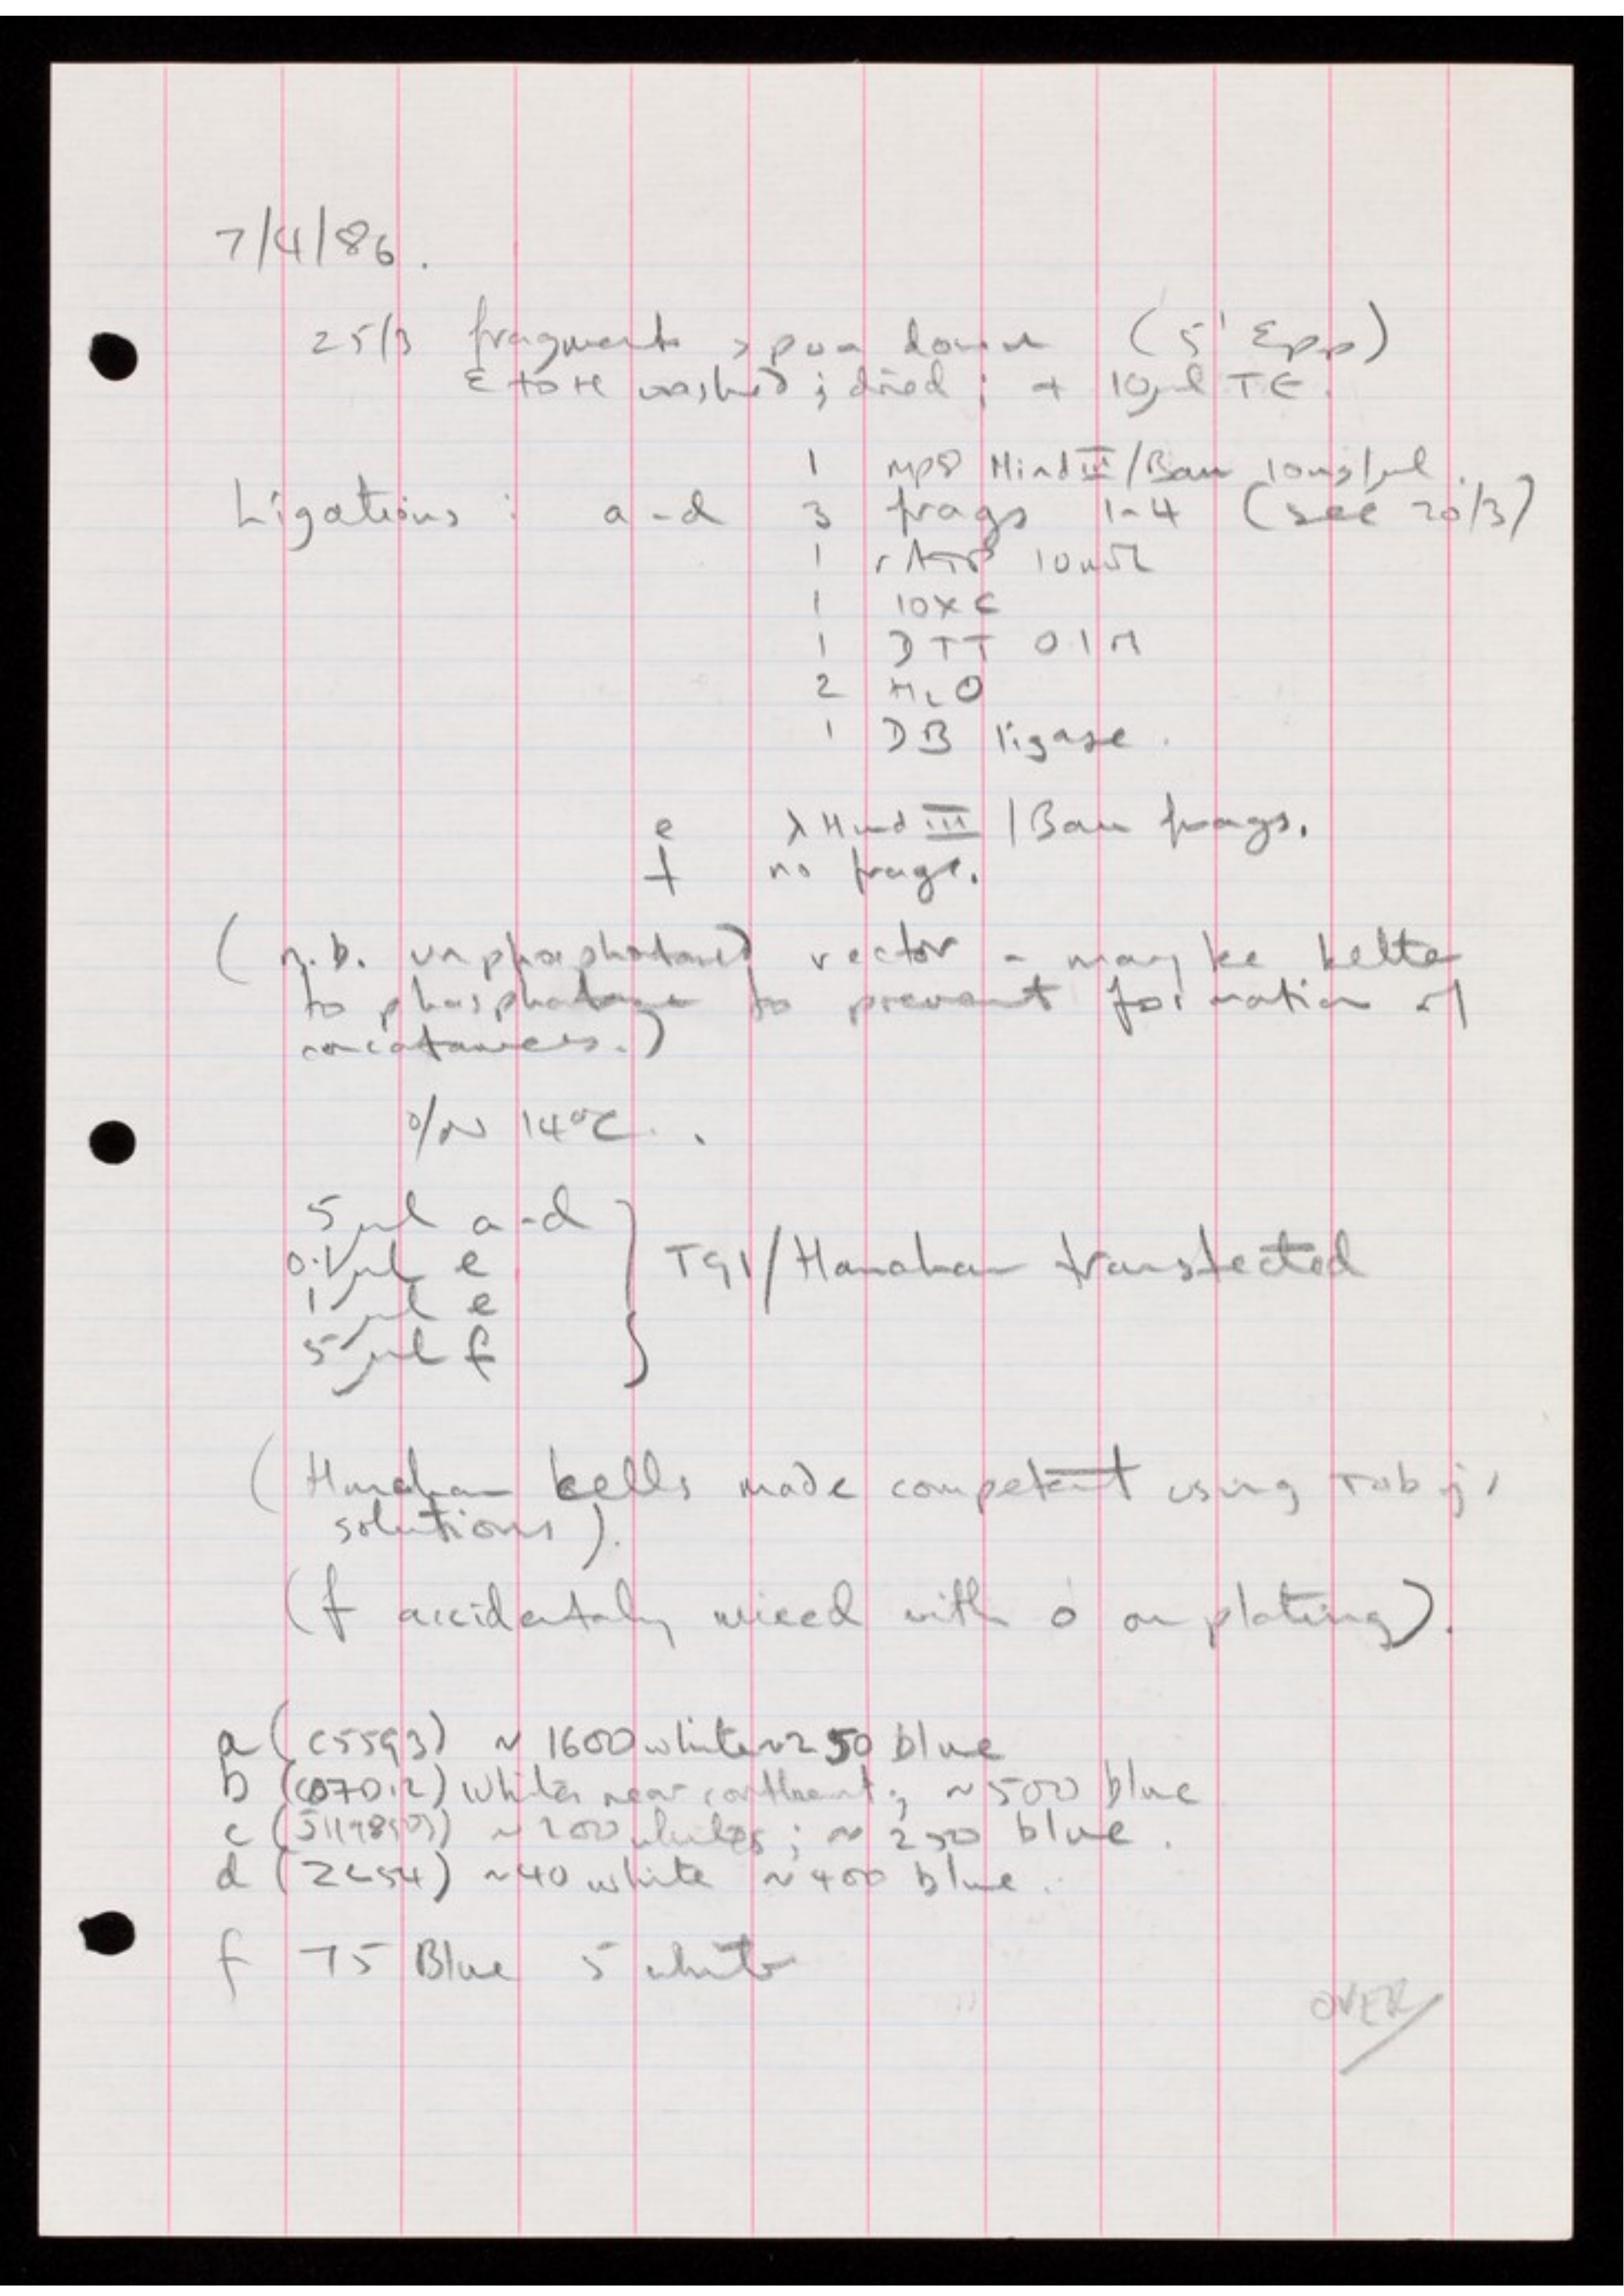 7/4/86.
25/3 fragments spun down (5' Epp)
EtOH washed; dried; + 10μl TE.
1 mp8 Hind III/Bam 10ng/μl.
Ligations : a-d 3 frags 1-4 (see 20/3)
1 rATP 10mM
1 10xC
1 DTT 0.1M
2 H2O
1 DB ligase.
e λ Hind III/Bam frags.
f no frags.
(n.b. unphosphatased vector - may be better
to phosphatase to prevent formation of
concatamers.)
O/N 14°C.
5μl a-d
0.1μl e } TG1/Hanahan transfected
1μl e
5μl f
(Hanahan cells made competent using
solutions).
(f accidentally mixed with o on plating).
a (C5593) ~ 1600 white ~250 blue
b (C07012) whites near confluent; ~500 blue
c ~200 whites; ~250 blue.
d ~40 white ~400 blue.
f 75 Blue 5 white
OVER